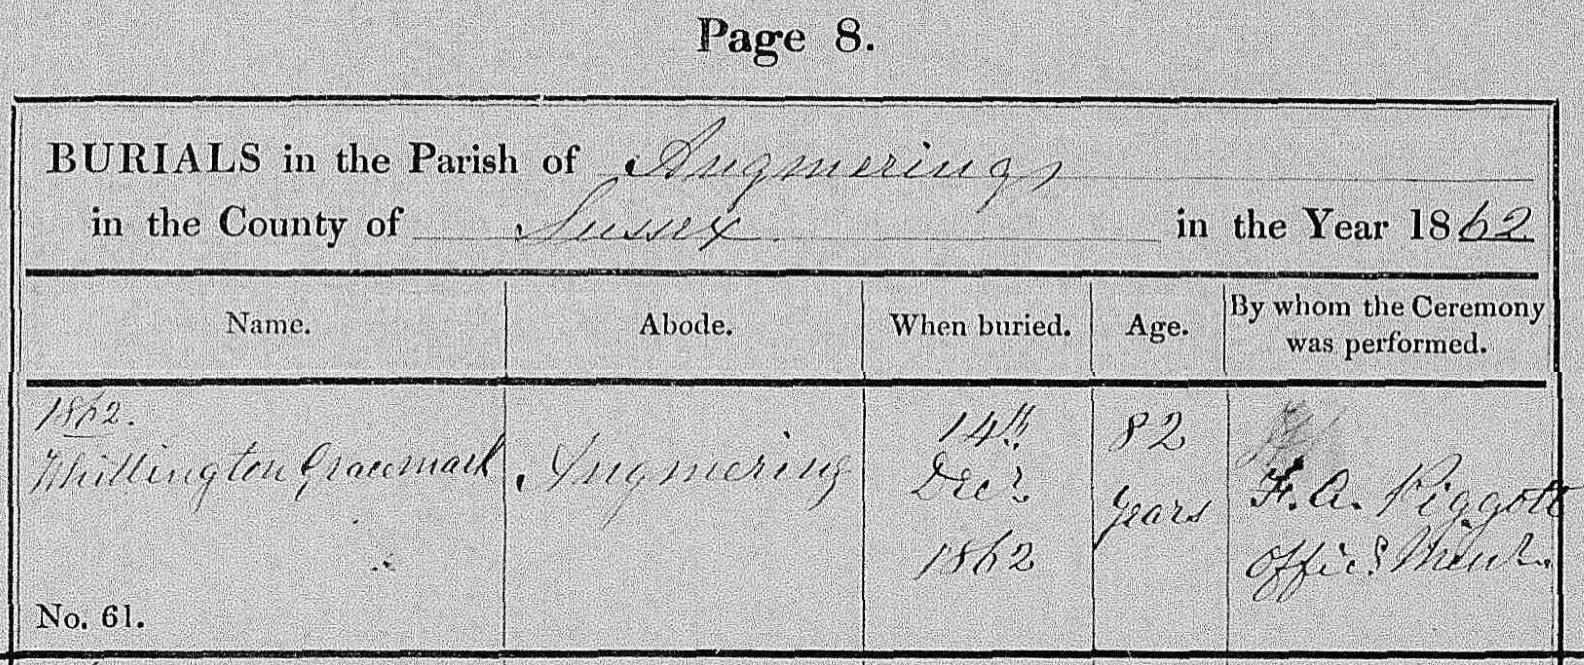 Page 8.
BURIALS in the Parish of Angmering
in the County of Sussex in the Year 1862
Name. Abode. When buried. Age. By whom the Ceremony was performed.
1862.
Whittington Gracemark
Angmering
14th
Decr
1862
82
years
F. A. Piggott
Offic.g Minr.
No. 61.